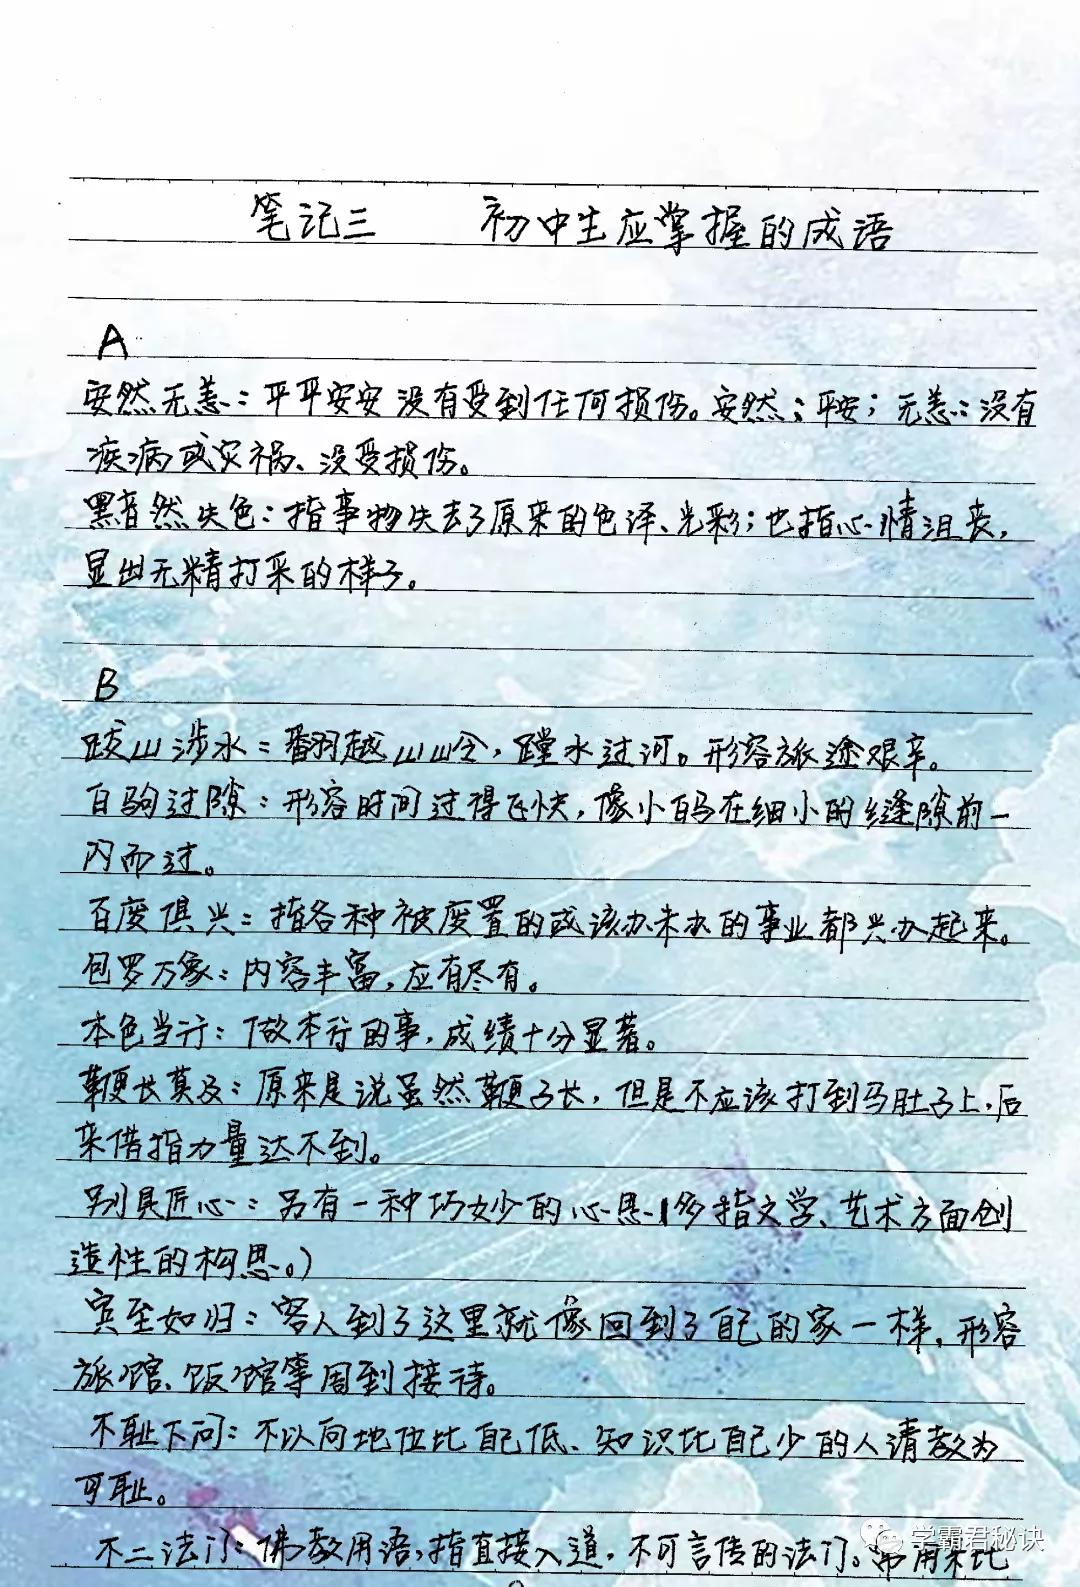 笔记三 初中生应掌握的成语
A
安然无恙：平平安安没有受到任何损伤。安然：平安；无恙：没有
疾病或灾祸、没受损伤。
黯然失色：指事物失去了原来的色泽、光彩；也指心情沮丧，
显出无精打采的样子。
B
跋山涉水：翻越山岭，蹚水过河。形容旅途艰辛。
白驹过隙：形容时间过得飞快，像小白马在细小的缝隙前一
闪而过。
百废俱兴：指各种被废置的或该办未办的事业都兴办起来。
包罗万象：内容丰富，应有尽有。
本色当行：做本行的事，成绩十分显著。
鞭长莫及：原来是说虽然鞭子长，但是不应该打到马肚子上，后
来借指力量达不到。
别具匠心：另有一种巧妙的心思（多指文学、艺术方面创
造性的构思。）
宾至如归：客人到了这里就像回到了自己的家一样，形容
旅馆、饭馆等周到接待。
不耻下问：不以向地位比自己低、知识比自己少的人请教为
可耻。
不二法门：佛教用语，指直接入道，不可言传的法门。常用来比
学霸君秘诀